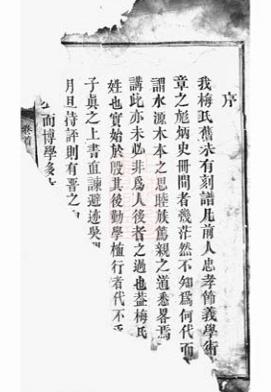 序
我梅氏舊未有刻譜凡前人忠孝節義學術
章之彪炳史冊間者幾茫然不知爲何代而
水源木本之思睦族篤親之道悉畧焉
講此亦未必非爲人後者之過也葢梅氏
姓也實始於殷其後勤學植行者代不
子眞之上書直諫避迹吳
月旦待評則有晋之
而博學
卷首